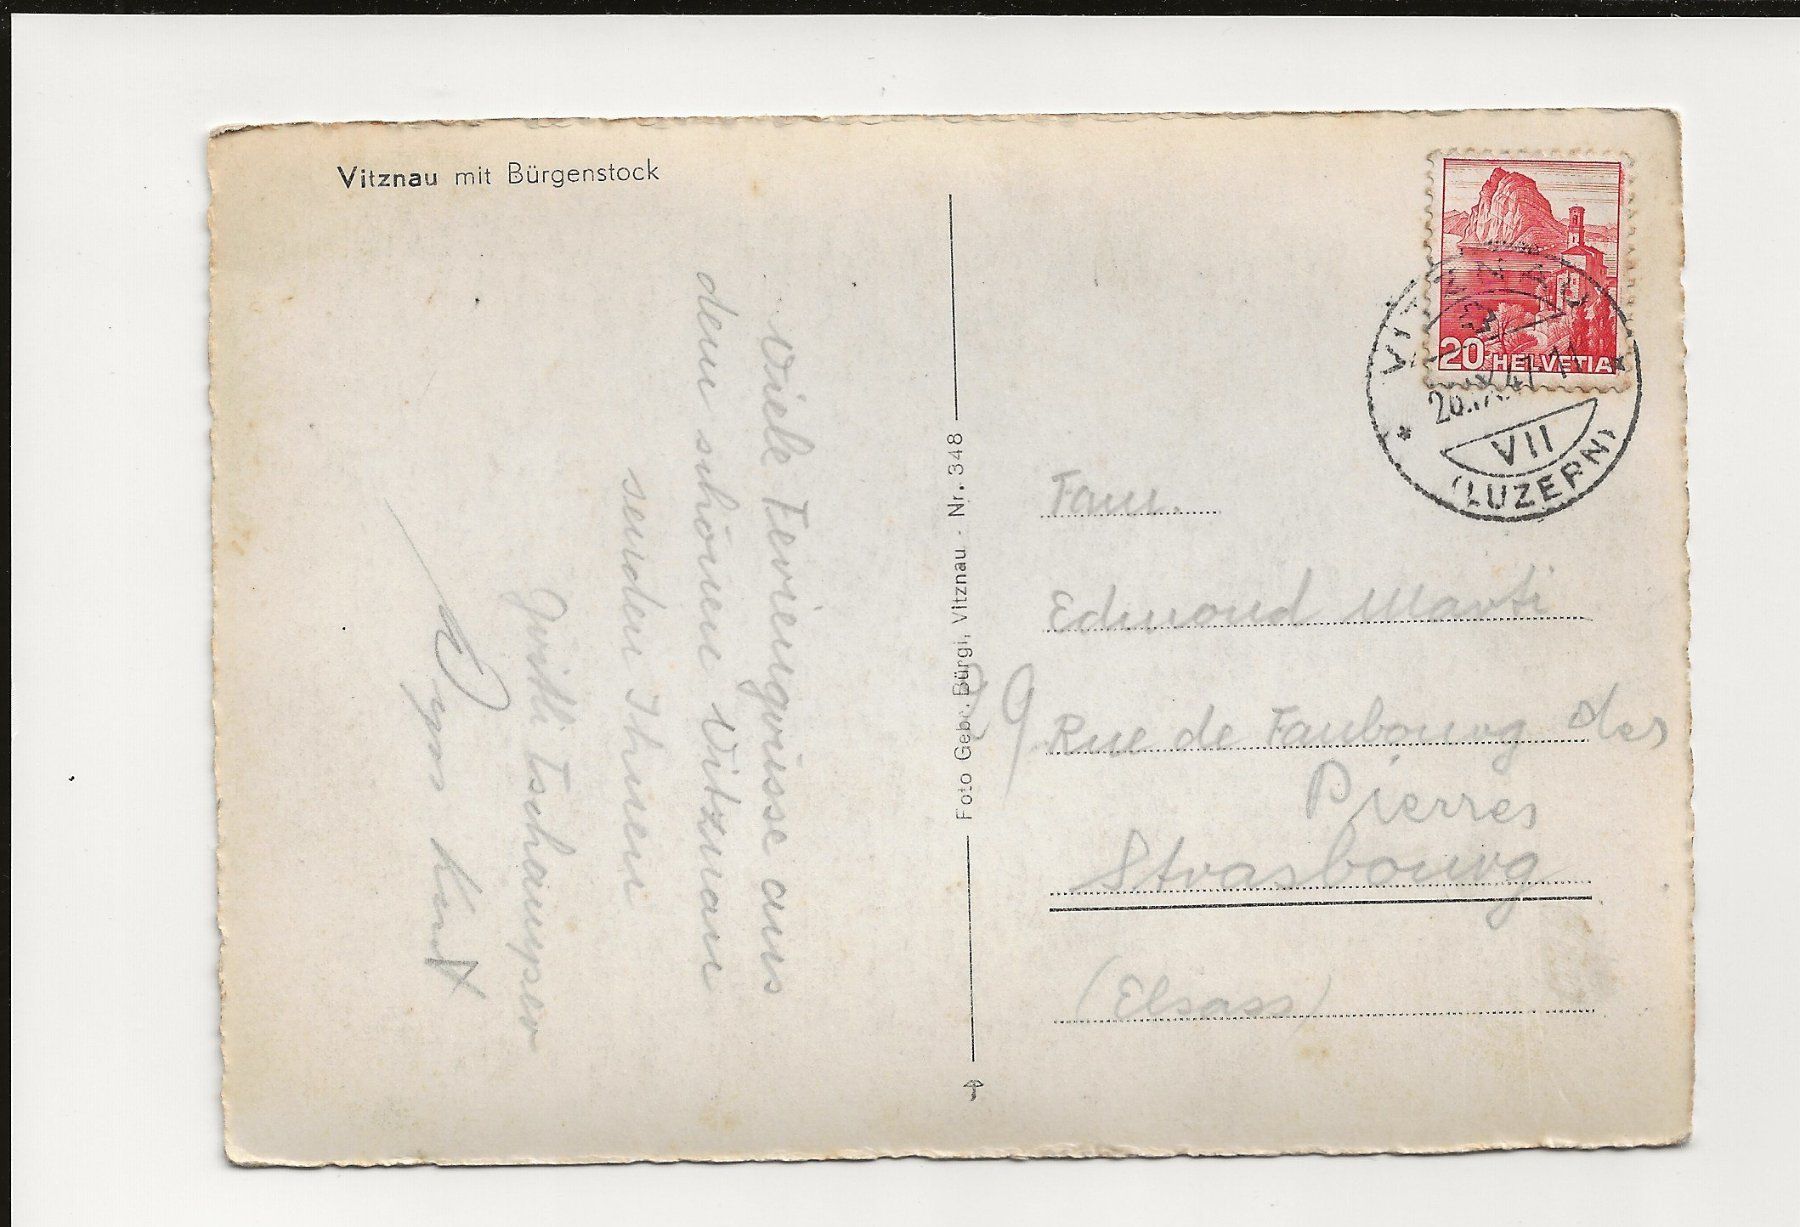 Vitznau mit Bürgenstock
Viele Feriengrüsse aus
dem schönen Vitznau
senden Ihnen
Tschamper
Foto Gebr. Bürgi, Vitznau - Nr. 348
20 HELVETIA
VITZNAU
26.IX.47-11
VII
(LUZERN)
Fam.
Edmond Marti
29 Rue de Faubourg des
Pierres
Strasbourg
(Elsass)